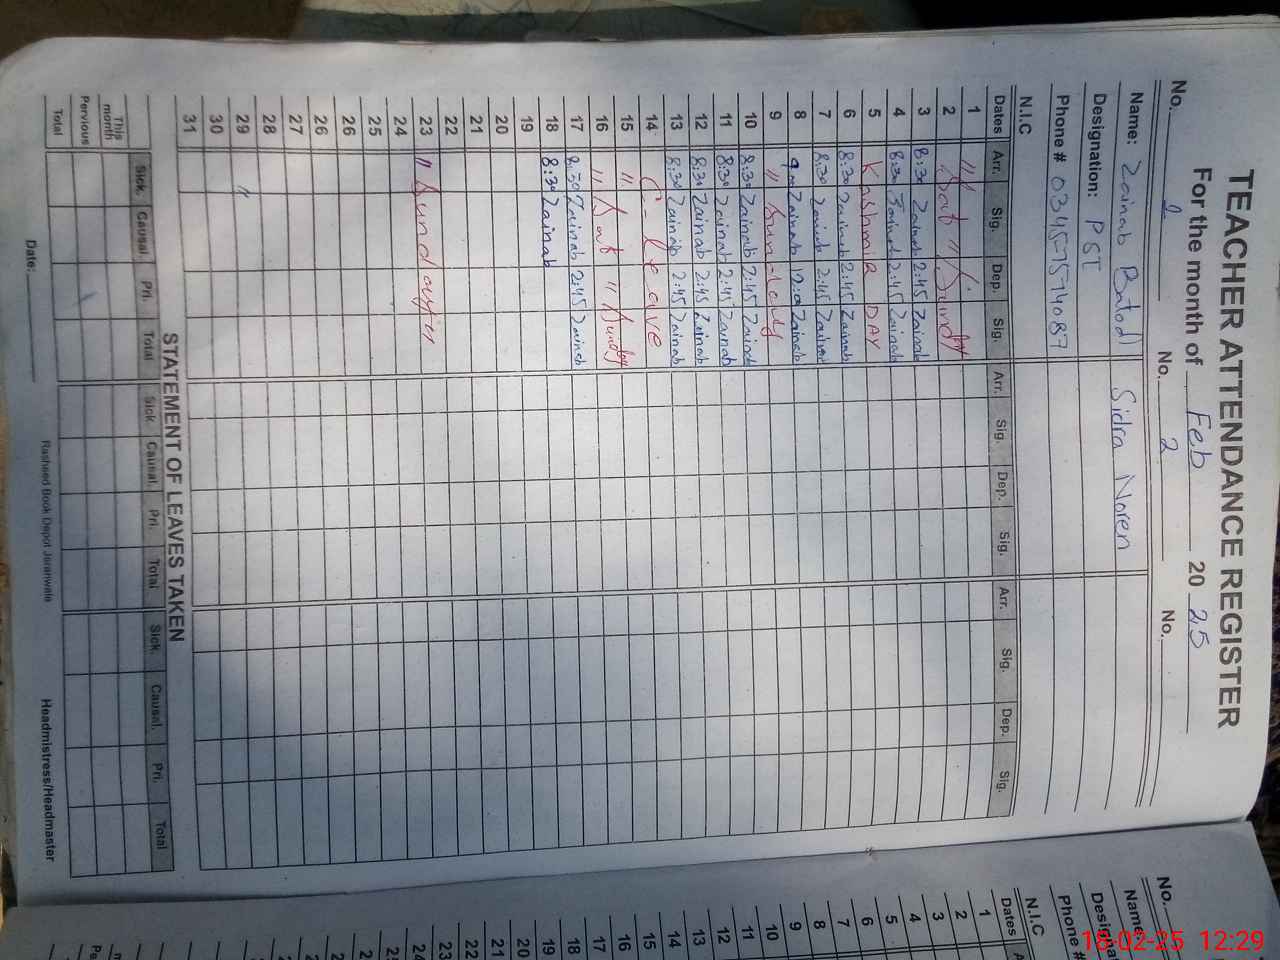 TEACHER ATTENDANCE REGISTER
For the month of Feb 20 25
No. 1 No. 2 No.
Name: Zainab Batool Sidra Noren
Designation: PST
Phone # 0345-7574087
N.I.C
Dates Arr. Sig. Dep. Sig. Arr. Sig. Dep. Sig. Arr. Sig. Dep. Sig.
1 "
2 Sat "
3 8:30 Zainab 2:45 Zainab
4 8:30 Zainab 2:45 Zainab
5 Kashmir DAY
6 8:30 Zainab 2:45 Zainab
7 8:30 Zainab 2:45 Zainab
8 9:00 Zainab 12:0 Zainab
9 " Sunday
10 8:30 Zainab 2:45 Zainab
11 8:30 Zainab 2:45 Zainab
12 8:30 Zainab 2:45 Zainab
13 8:30 Zainab 2:45 Zainab
14 C-Leave
15 "
16 " Sat " Sunday
17 8:30 Zainab 2:45 Zainab
18 8:30 Zainab
19
20
21
22
23 "
24
25
26
26
27
28
29 "
30
31
STATEMENT OF LEAVES TAKEN
Sick. Causal. Pri. Total Sick. Causal. Pri. Total Sick. Causal. Pri. Total
This month
Pervious
Total
Date: Rasheed Book Depot Jaranwala Headmistress/Headmaster
No.
Name
Design
Phone #
N.I.C
Dates
1
2
3
4
5
6
7
8
9
10
11
12
13
14
15
16
17
18
19
20
21
22
23
24
25
18-02-25 12:29